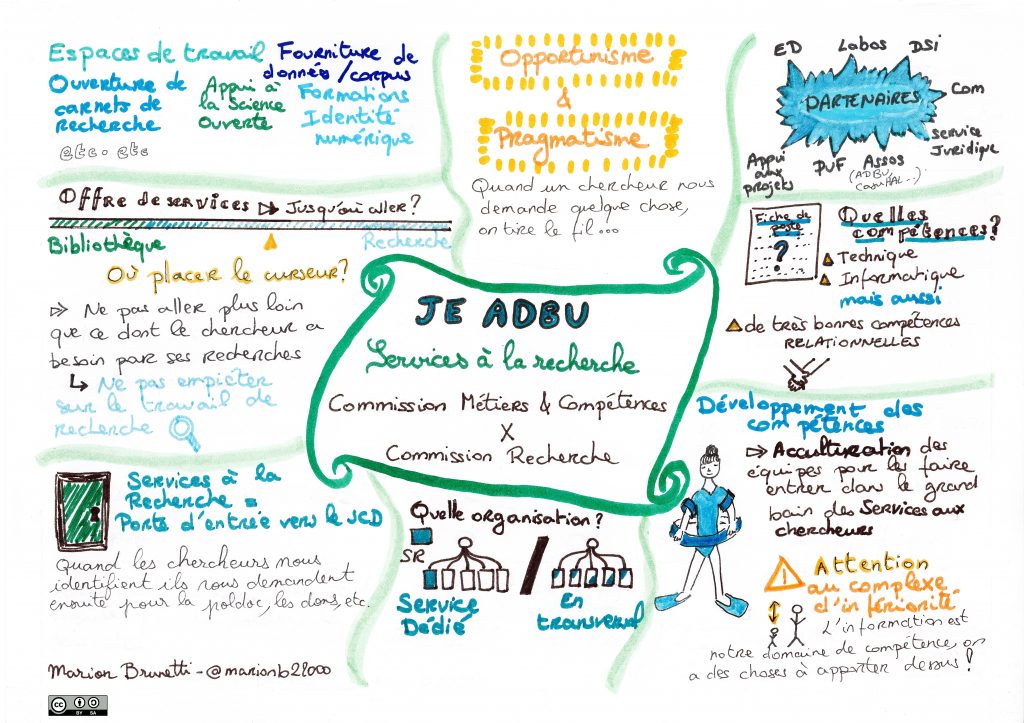 Espaces de travail
Fourniture de
données/corpus
Ouverture de
carnets de
recherche
Appui à
la Science
Ouverte
Formations
Identité
numérique
etc. etc
Opportunisme
&
Pragmatisme
Quand un chercheur nous
demande quelque chose,
on tire le fil...
ED
Labos
DSI
PARTENAIRES
Com
Service
Juridique
Appui
aux
projets
PUF
Assos
(ADBU,
CasuHAL...)
Offre de services ▷ Jusqu'où aller?
Bibliothèque
Recherche
Où placer le curseur?
▷ Ne pas aller plus loin
que ce dont le chercheur a
besoin par ses recherches
↳ Ne pas empiéter
sur le travail de
recherche
Fiche de
poste
?
Quelles
compétences?
Technique
Informatique
mais aussi
de très bonnes compétences
RELATIONNELLES
JE ADBU
Services à la recherche
Commission Métiers & Compétences
X
Commission Recherche
Services à la
Recherche =
Porte d'entrée vers le SCD
Quand les chercheurs nous
identifient ils nous demandent
ensuite pour la poldoc, les dons, etc.
Quelle organisation?
SR
/
Service
Dédié
En
transversal
Développement des
compétences
▷ Acculturation des
équipes pour les faire
entrer dans le grand
bain des Services aux
chercheurs
!
Attention
au complexe
d'infériorité
L'information est
notre domaine de compétence, on
a des choses à apporter dessus!
Marion Brunetti - @marionb21000
cc
BY SA